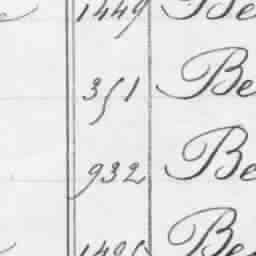 1449 Be
351 Be
932 Be
Be